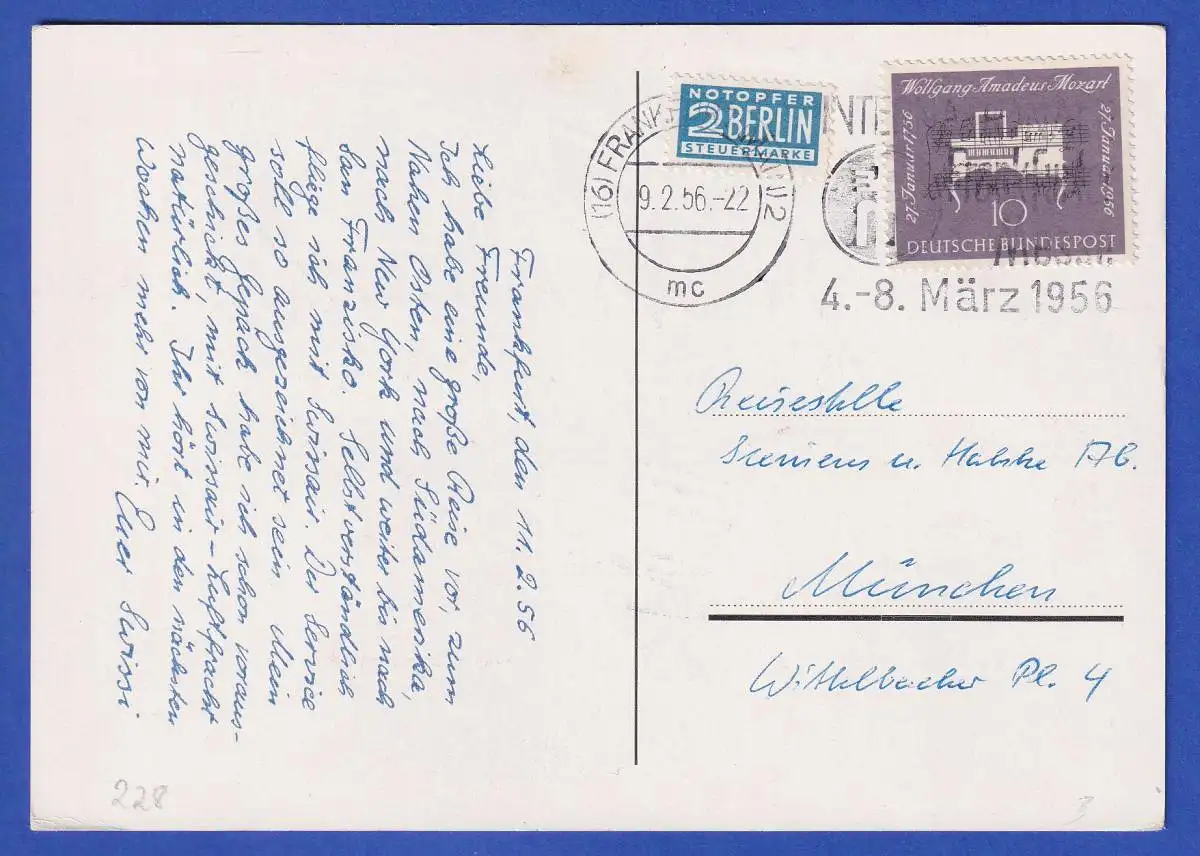 Frankfurt, den 11.2.56
Liebe Freunde,
Ich habe eine große Reise vor, zum
Nahen Osten, nach Südamerika,
nach New York und weiter bis nach
San Franzisko. Selbstverständlich
fliege ich mit Swissair. Der Service
soll so ausgezeichnet sein. Mein
großes Gepäck habe ich schon voraus-
geschickt, mit Swissair-Luftfracht
natürlich. Ihr hört in den nächsten
Wochen mehr von mir. Euer Swissi.
228
NOTOPFER
2 BERLIN
STEUERMARKE
(16) FRANKF
2
9.2.56.-22
mc
INTE
Messe
4.-8. März 1956
Wolfgang Amadeus Mozart
27. Januar 1756
27. Januar 1956
10
DEUTSCHE BUNDESPOST
Reisestelle
Siemens u. Halske AG.
München
Wittelbacher Pl. 4
3